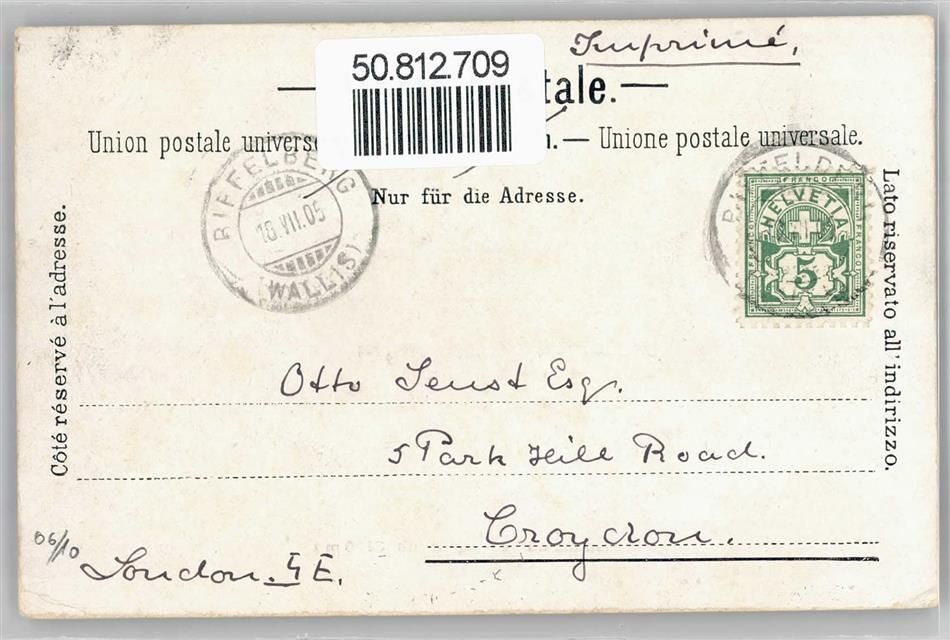 Imprimé,
50.812.709
tale.
Union postale univers n. — Unione postale universale.
Nur für die Adresse.
RIFFELBERG
18 VII.05
(WALLIS)
FRANCO
HELVETIA
FRANCO FRANCO
5
Côté réservé à l'adresse.
Lato riservato all'indirizzo.
Otto Senst Esq.
5 Park Hill Road.
Croydon.
06/10
London.